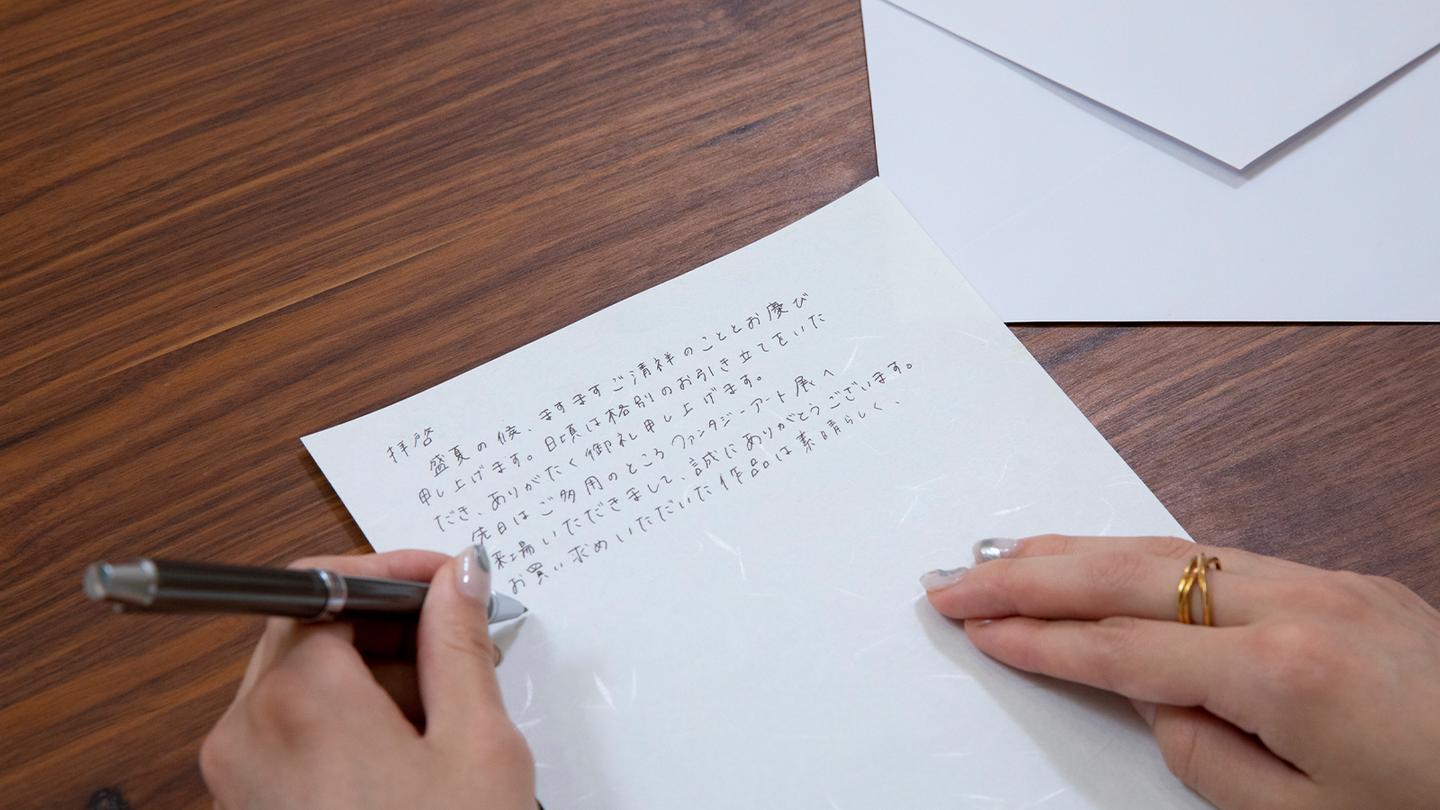 拝啓
盛夏の候、ますますご清祥のこととお慶び
申し上げます。日頃は格別のお引き立てをいた
だき、ありがたく御礼申し上げます。
先日はご多用のところファンタジーアート展へ
来場いただきまして、誠にありがとうございます。
お買い求めいただいた作品は素晴らしく、